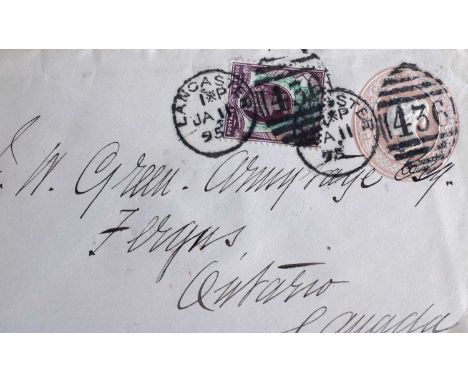 LANCASTER
1*P
JA 11
95
436
POSTAGE
LANCASTER
1*P
JA 11
95
436
W. Green. Armytage Esq.
Fergus
Ontario
Canada